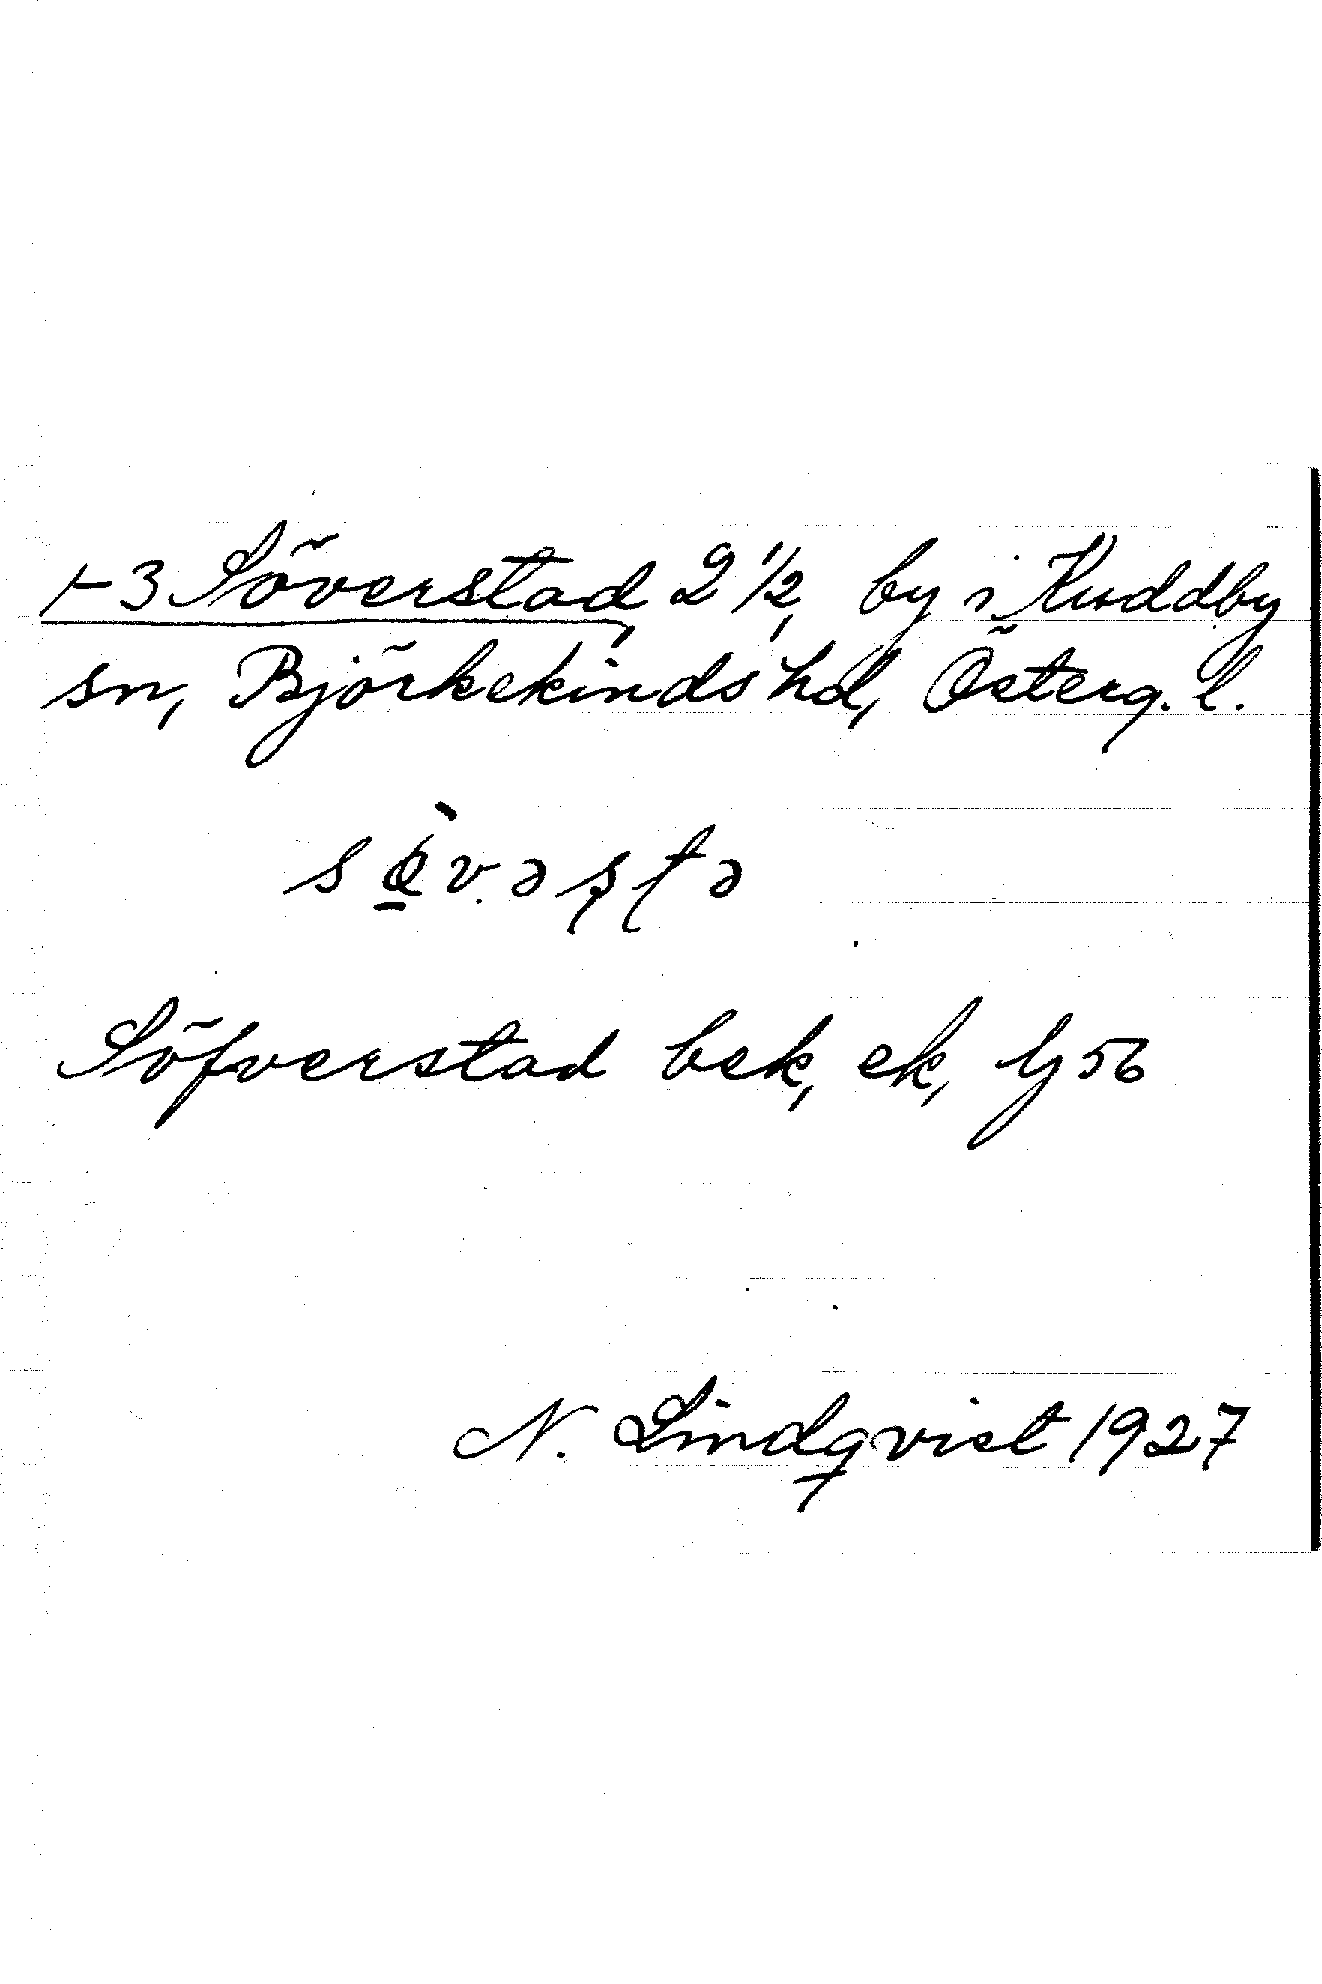 1-3 Söverstad, 2 1/2, by i Kuddby
sn, Björkekinds hd, Österg. l.
sø̀̄v.əʂʈə
Söfverstad bek, ek, Gj 56
N. Lindqvist 1927